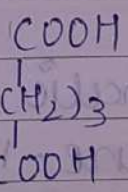 COOH
(CH₂)₃
COOH